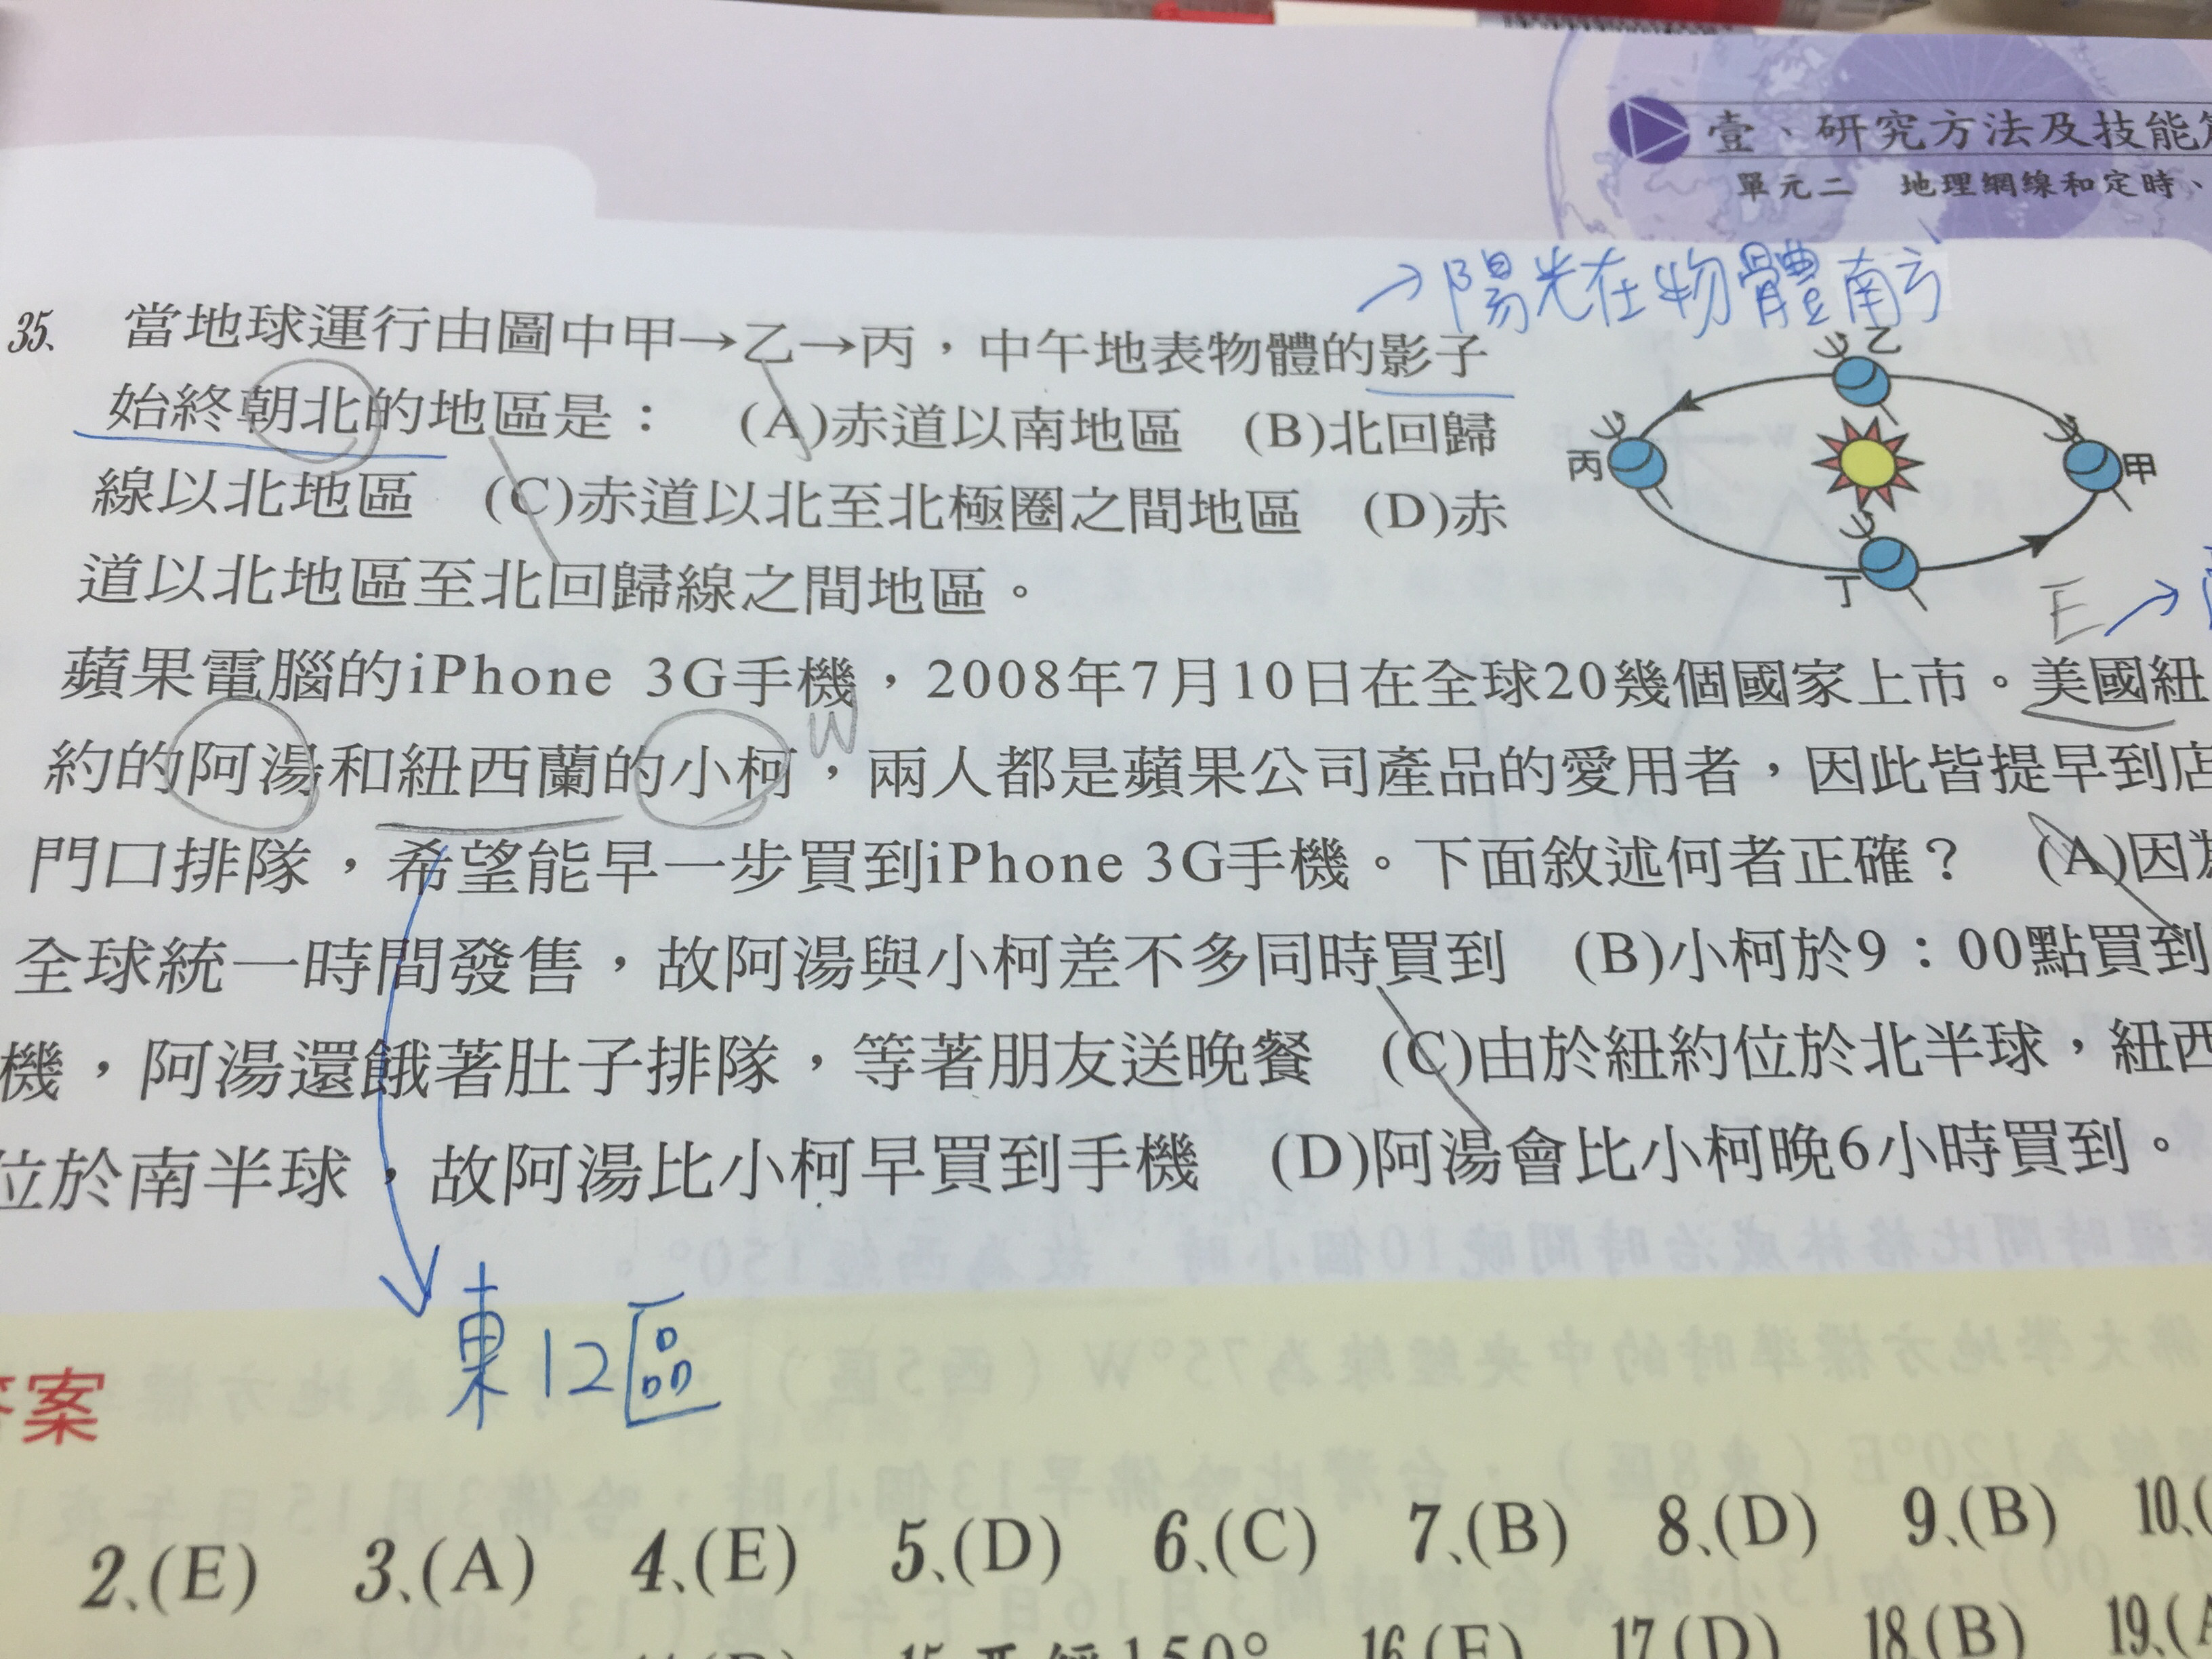 壹、研究方法及技能
單元二 地理網線和定時、
→陽光在物體南方
35、 當地球運行由圖中甲→乙→丙，中午地表物體的影子
始終朝北的地區是： (A)赤道以南地區 (B)北回歸
線以北地區 (C)赤道以北至北極圈之間地區 (D)赤
道以北地區至北回歸線之間地區。
乙
丙
甲
丁
E →
蘋果電腦的iPhone 3G手機，2008年7月10日在全球20幾個國家上市。美國紐
W
約的阿湯和紐西蘭的小柯，兩人都是蘋果公司產品的愛用者，因此皆提早到店
門口排隊，希望能早一步買到iPhone 3G手機。下面敘述何者正確？ (A)因為
全球統一時間發售，故阿湯與小柯差不多同時買到 (B)小柯於9：00點買到
機，阿湯還餓著肚子排隊，等著朋友送晚餐 (C)由於紐約位於北半球，紐西
位於南半球，故阿湯比小柯早買到手機 (D)阿湯會比小柯晚6小時買到。
東12區
答案
2、(E) 3、(A) 4、(E) 5、(D) 6、(C) 7、(B) 8、(D) 9、(B) 10、(
150° 16、(E) 17、(D) 18、(B) 19、(A